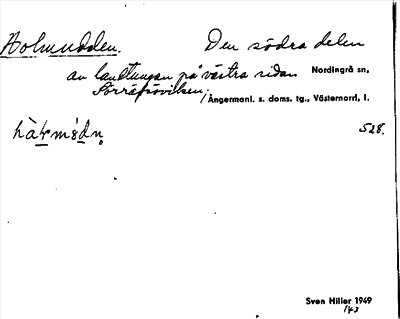 Holmudden. Den södra delen
av landtungan på västra sidan Nordingrå sn,
Norrfjärdsviken; Ångermanl. s. doms. tg., Västernorrl. l.
528.
Sven Hiller 1949
143